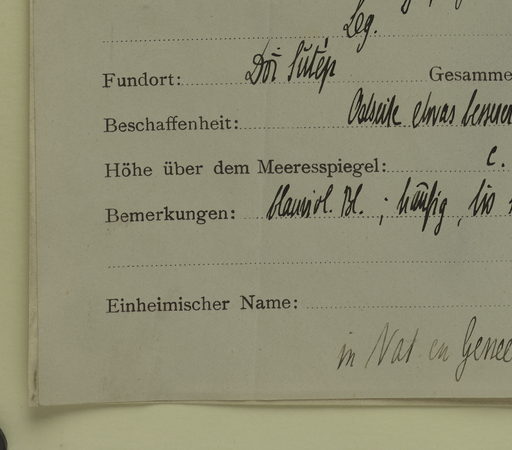 Leg.
Fundort: Doi Sutép Gesamme
Beschaffenheit: Ostseite etwas
Höhe über dem Meeresspiegel: c.
Bemerkungen: blauviol. Bl. ; häufig, bis
Einheimischer Name:
in Nat en Genee